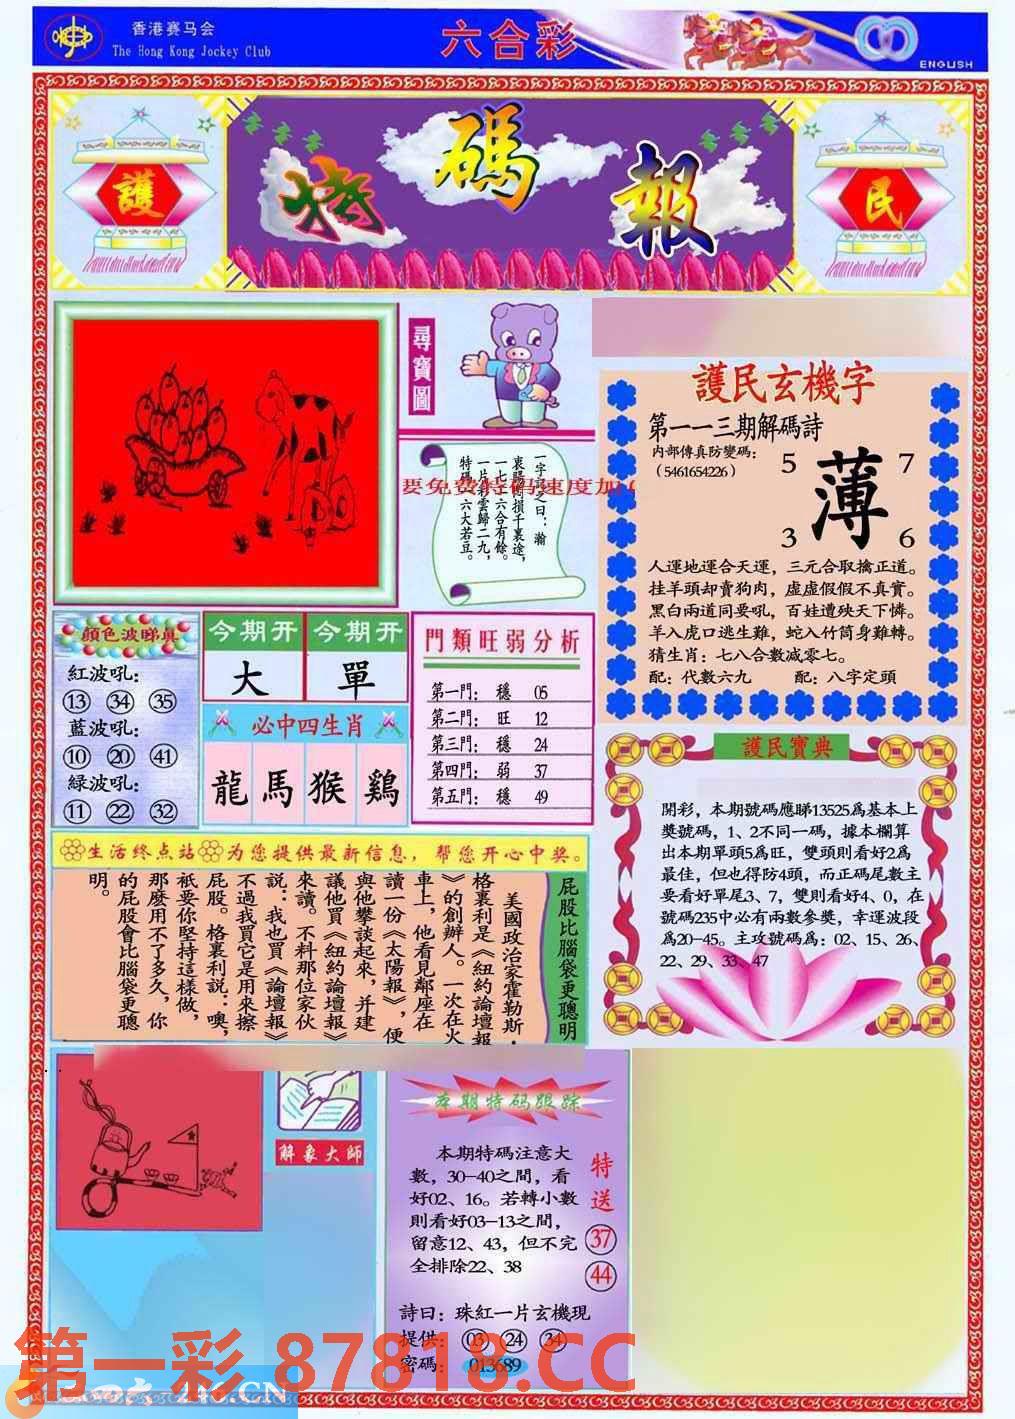 香港赛马会
The Hong Kong Jockey Club
六合彩
ENGLISH
護
特碼報
民
尋寶圖
一字記之曰：瀚
裏賜閂損千裏途，
一七二六合有餘。
一片彩雲歸二九，
特碼 六大若豆。
要免费特码速度加
護民玄機字
第一一三期解碼詩
内部傳真防變碼：
（5461654226）
5
7
薄
3
6
人運地運合天運，三元合取擒正道。
挂羊頭却賣狗肉，虛虛假假不真實。
黑白兩道同要吼，百姓遭殃天下憐。
羊入虎口逃生難，蛇入竹筒身難轉。
猜生肖：七八合數减零七。
配：代數六九 配：八字定頭
顔色波睇真
紅波吼：
13 34 35
藍波吼：
10 20 41
緑波吼：
11 22 32
今期开 今期开
大 單
必中四生肖
龍 馬 猴 鷄
門類旺弱分析
第一門： 穩 05
第二門： 旺 12
第三門： 穩 24
第四門： 弱 37
第五門： 穩 49
護民寶典
開彩，本期號碼應睇13525爲基本上
獎號碼，1、2不同一碼，據本欄算
出本期單頭5爲旺，雙頭則看好2爲
最佳，但也得防4頭，而正碼尾數主
要看好單尾3、7，雙則看好4、0，在
號碼235中必有兩數參獎，幸運波段
爲20-45。主攻號碼爲：02、15、26、
22、29、33、47
生活终点站 为您提供最新信息，帮您开心中奖。
屁股比腦袋更聰明
美國政治家霍勒斯·
格裏利是《紐約論壇報
》的創辦人。一次在火
車上，他看見鄰座在
讀一份《太陽報》，便
與他攀談起來，并建
議他買《紐約論壇報》
來讀。不料那位家伙
説：我也買《論壇報》
不過我買它是用來擦
屁股。格裏利説：噢，
衹要你堅持這樣做，
那麽用不了多久，你
的屁股會比腦袋更聰
明。
解象大師
本期特码跟踪
本期特碼注意大
數，30-40之間，看
好02、16。若轉小數
則看好03-13之間，
留意12、43，但不完
全排除22、38
特送
37
44
詩曰：珠紅一片玄機現
提供：03 24 34
密碼： 013689
第一彩 87818.CC